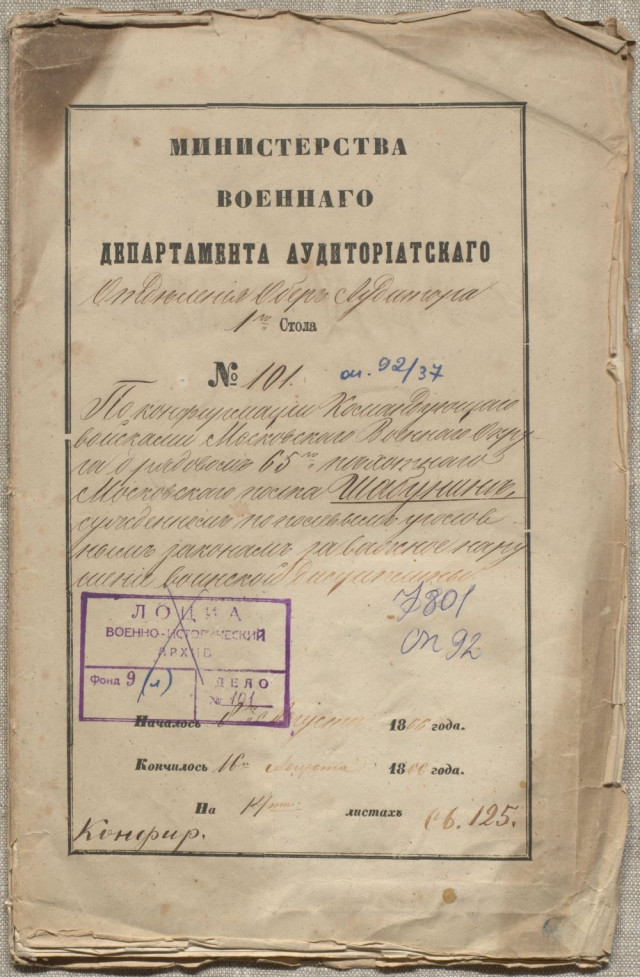 МИНИСТЕРСТВА
ВОЕННАГО
ДЕПАРТАМЕНТА АУДИТОРІАТСКАГО
Отдѣленія Оберъ Аудитора
1го Стола
№ 101. оп. 92/37
По конфирмаціи Командующаго
войсками Московскаго Военнаго Окру-
га о рядовомъ 65го пѣхотнаго
Московскаго полка Шабунинѣ,
сужденномъ по полевымъ уголов-
нымъ законамъ за важное нару
шеніе воинской дисциплины
ЛОЦИА
ВОЕННО-ИСТОРИЧЕСКИЙ
АРХИВ
Фонд 9 (л)
ДЕЛО
№ 101
801
оп 92
Началось Августа 1866 года.
Кончилось 16го Августа 1866 года.
На 14ти листахъ
св. 125.
Конфир.